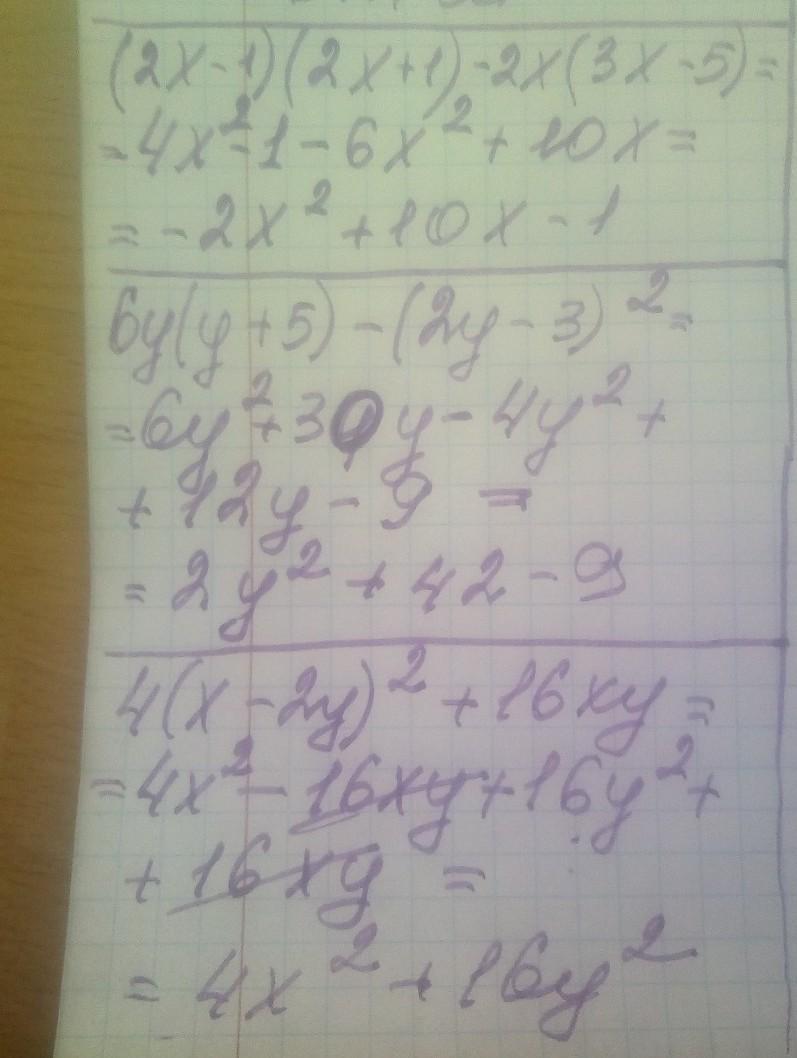 (2x-1)(2x+1)-2x(3x-5)=
=4x²-1-6x²+10x=
=-2x²+10x-1
6y(y+5)-(2y-3)²=
=6y²+30y-4y²+
+12y-9=
=2y²+42-9
4(x-2y)²+16xy=
=4x²-16xy+16y²+
+16xy=
=4x²+16y²